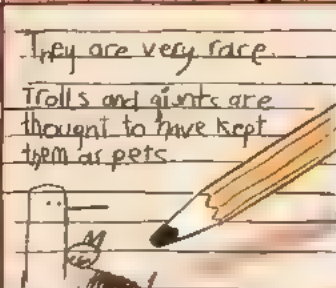 They are very rare.
Trolls and giants are
thought to have kept
them as pets